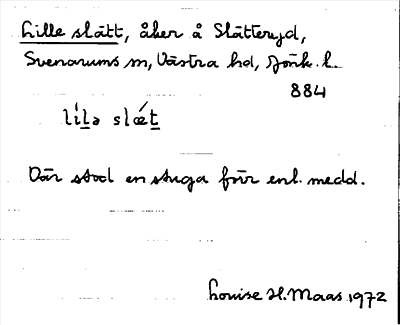 Lille slätt, åker å Slätteryd,
Svenarums sn, Västra hd, Jönk. l.
884
lílə slǽt
Där stod en stuga förr enl. medd.
Louise H. Maas 1972